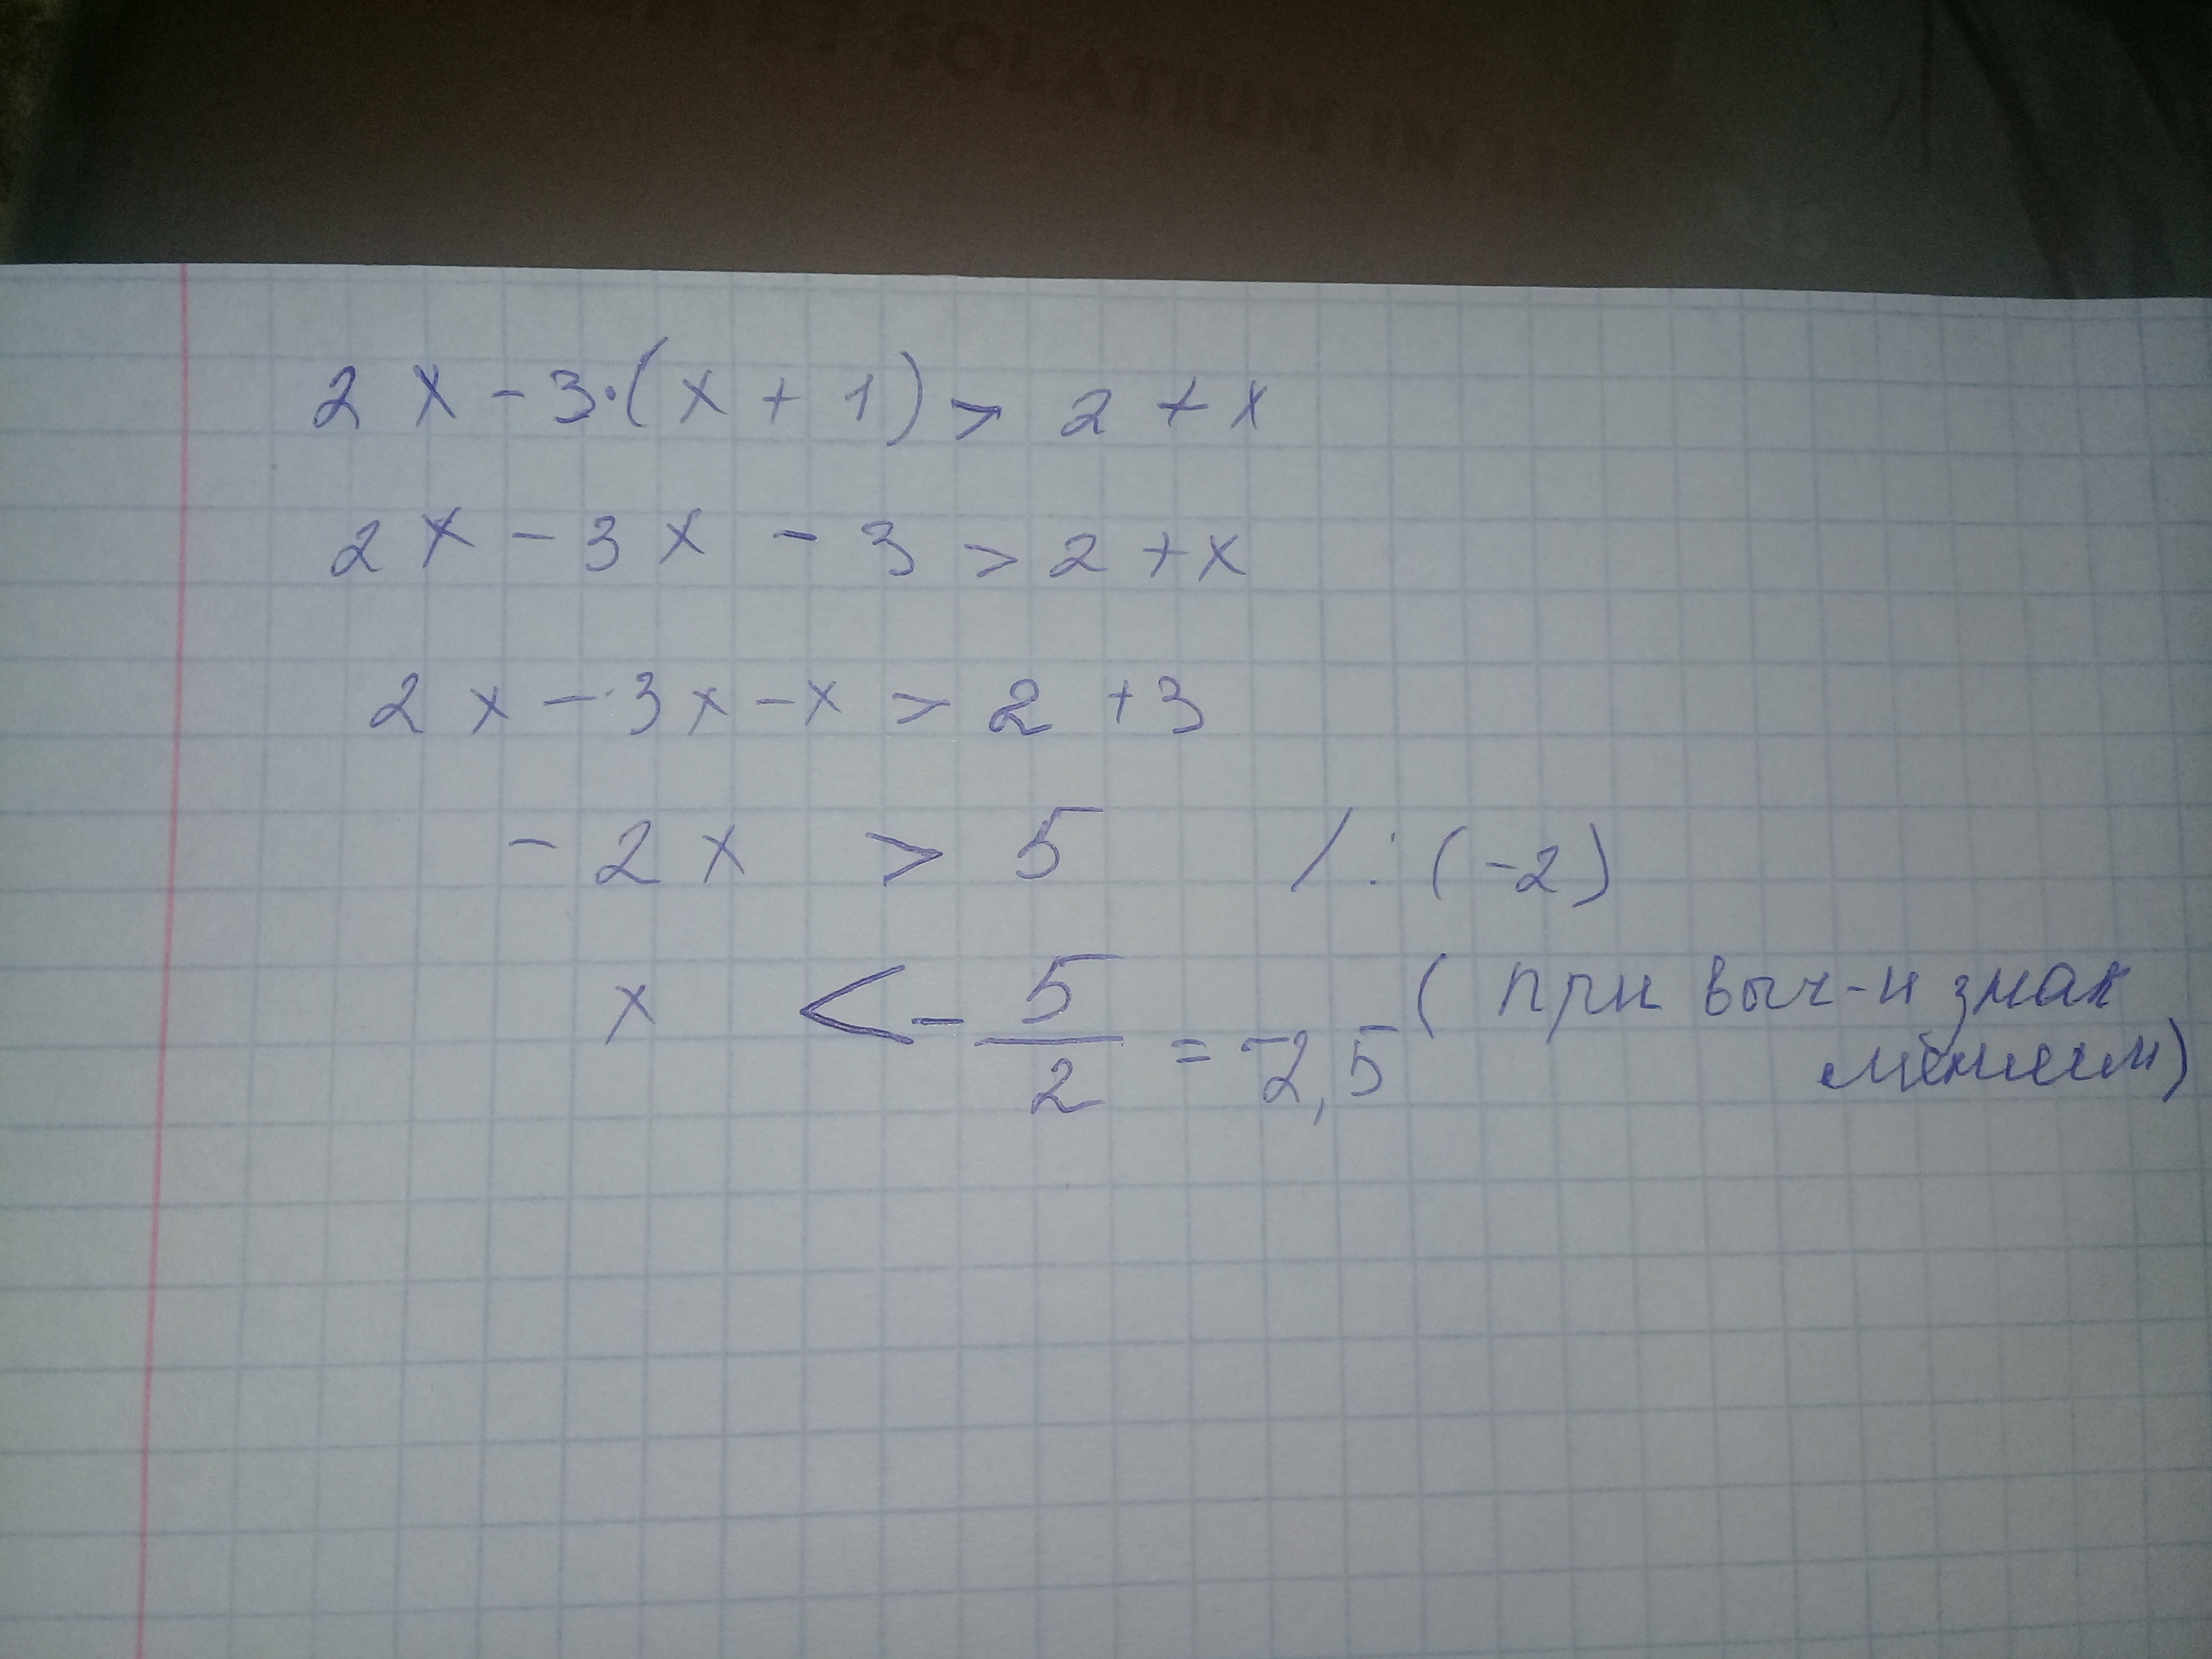 ET SOLATIUM IN
2x - 3·(x + 1) > 2 + x
2x - 3x - 3 > 2 + x
2x - 3x - x > 2 + 3
- 2x > 5 /: (-2)
x < - 5/2 = -2,5 ( при выч-и знак
меняем)